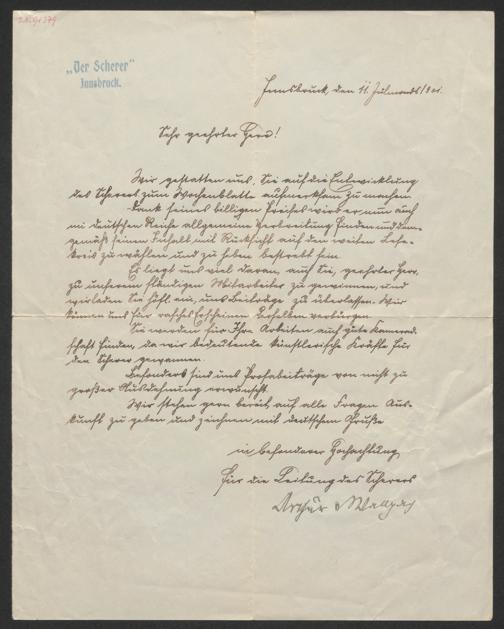 "Der Scherer"
Innsbruck.
Innsbruck, den 11. Julmonds 1901.
Sehr geehrter Herr!
Wir gestatten uns, Sie auf die Entwicklung
des Scherers zum Wochenblatte aufmerksam zu machen.
Dank seines billigen Preises wird er nun auch
im deutschen Reiche allgemeine Verbreitung finden und dem-
gemäß seinen Inhalt mit Rücksicht auf den weiten Lese-
kreis zu wählen und zu heben bestrebt sein.
Es liegt uns viel daran, auch Sie, geehrter Herr,
zu unserem ständigen Mitarbeiter zu gewinnen, und
wir laden Sie höfl. ein, uns Beiträge zu überlassen. Wir
können uns für rasches Erscheinen derselben verbürgen.
Sie werden für Ihre Arbeiten auch gute Kamerad-
schaft finden, da wir bedeutende künstlerische Kräfte für
den Scherer gewannen.
Besonders sind uns Prosabeiträge von nicht zu
großer Ausdehnung erwünscht.
Wir stehen gern bereit auf alle Fragen Aus-
kunft zu geben und zeichnen mit deutschem Gruße
in besonderer Hochachtung
für die Leitung des Scherers
Arthur v. Wallpach